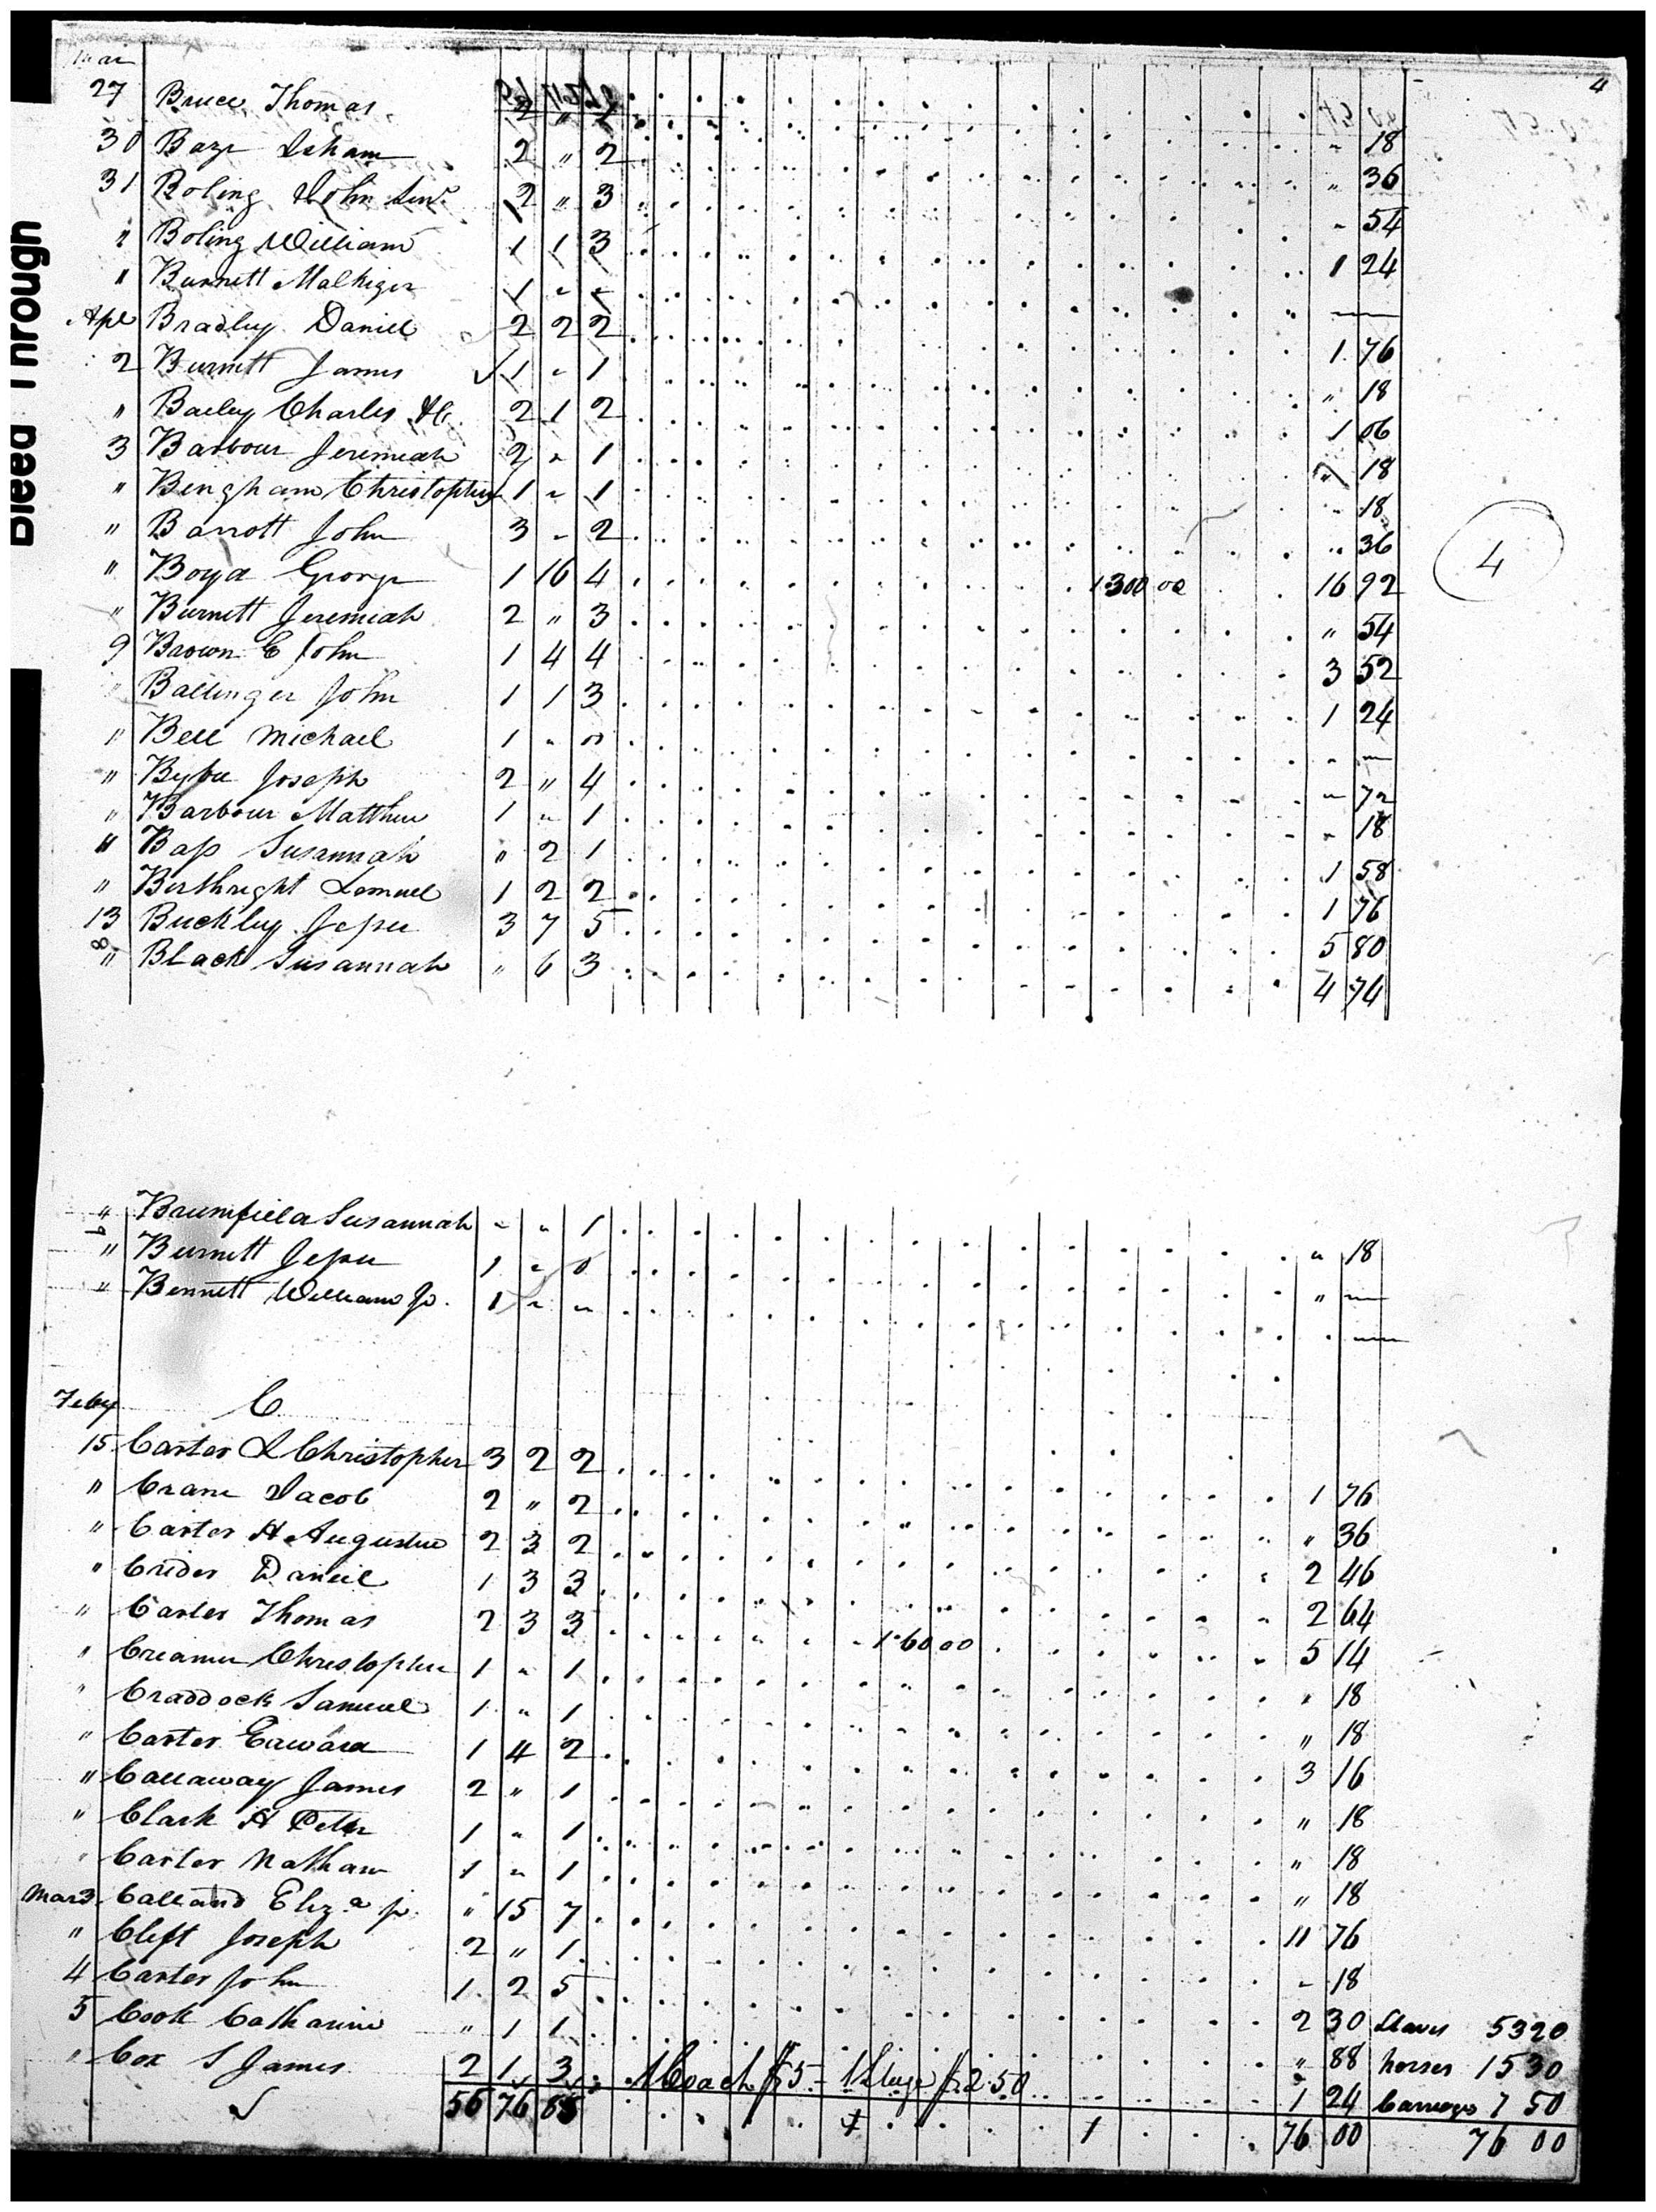 4
Mar
27 Bruce Thomas 2 " 18
30 Baze Isham 2 " 2 " 36
31 Boling John Senr 2 " 3 " 54
" Boling William 1 1 3 1 24
" Burnett Malkiger 1 " "
Apl Bradley Daniel 2 2 2 1 76
2 Burnett James 1 " 1 " 18
" Bailey Charles 2 1 2 1 06
3 Barbour Jeremiah 2 " 1 " 18
" Bingham Christopher 1 " 1 " 18
" Barrott John 3 " 2 " 36
" Boyd George 1 16 4 1 300 00 16 92
4
" Burnett Jeremiah 2 " 3 " 54
9 Brown C John 1 4 4 3 52
" Ballinger John 1 1 3 1 24
" Bell Michael 1 " "
" Bybee Joseph 2 " 4 " 72
" Barbour Matthew 1 " 1 " 18
" Bass Susannah " 2 1 1 58
" Birthright Lemuel 1 2 2 1 76
13 Buckley Jesse 3 7 5 5 80
" Black Susannah " 6 3 4 74
" Brumfield Susannah " " 1 " 18
" Burnett Jesse 1 " 0 "
" Bennett William Jr. 1 " "
Feby C
15 Carter L Christopher 3 2 2 1 76
" Crane Jacob 2 " 2 " 36
" Carter H Augustus 2 3 2 2 46
" Crider Daniel 1 3 3 2 64
" Carter Thomas 2 3 3 1 60 00 5 14
" Creamer Christopher 1 " 1 " 18
" Craddock Samuel 1 " 1 " 18
" Carter Edward 1 4 2 3 16
" Callaway James 2 " 1 " 18
" Clark H Peter 1 " 1 " 18
" Carter Nathan 1 " 1 " 18
Mar 3 Calland Eliza " 15 7 11 76
" Clift Joseph 2 " 1 " 18
4 Carter John 1 2 5 2 30 Slaves 53 20
5 Cook Catharine " 1 1 " 88 horses 15 30
" Cox S James 2 1 3 1 Coach $5 - 1 Stage $2 50 1 24 Carriages 7 50
56 76 85 1 1 76 00 76 00
Bleed Through